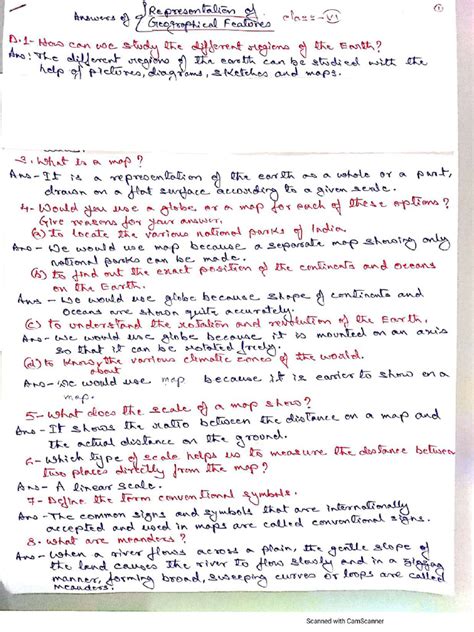 Answers of { Representation of Geographical Features class - VI
①
Q.1- How can we study the different regions of the Earth?
Ans: The different regions of the earth can be studied with the
help of pictures, diagrams, sketches and maps.
3. What is a map?
Ans- It is a representation of the earth as a whole or a part,
drawn on a flat surface according to a given scale.
4- Would you use a globe or a map for each of these options?
Give reasons for your answer.
(a) to locate the various national parks of India.
Ans - We would use map because a separate map showing only
national parks can be made.
(b) to find out the exact position of the continents and oceans
on the Earth.
Ans - We would use globe because shape of continents and
Oceans are shown quite accurately.
(c) to understand the rotation and revolution of the Earth.
Ans- We would use globe because it is mounted on an axis
so that it can be rotated freely.
(d) to know about the various climatic zones of the world.
Ans- We would use map because it is easier to show on a
map.
5- What does the scale of a map show?
Ans- It shows the ratio between the distance on a map and
the actual distance on the ground.
6- Which type of scale helps us to measure the distance between
two places directly from the map?
Ans- A linear scale.
7- Define the term conventional symbols.
Ans- The common signs and symbols that are internationally
accepted and used in maps are called conventional signs.
8. What are meanders?
Ans- When a river flows across a plain, the gentle slope of
the land causes the river to flow slowly and in a zigzag
manner, forming broad, sweeping curves or loops are called
meanders.
Scanned with CamScanner